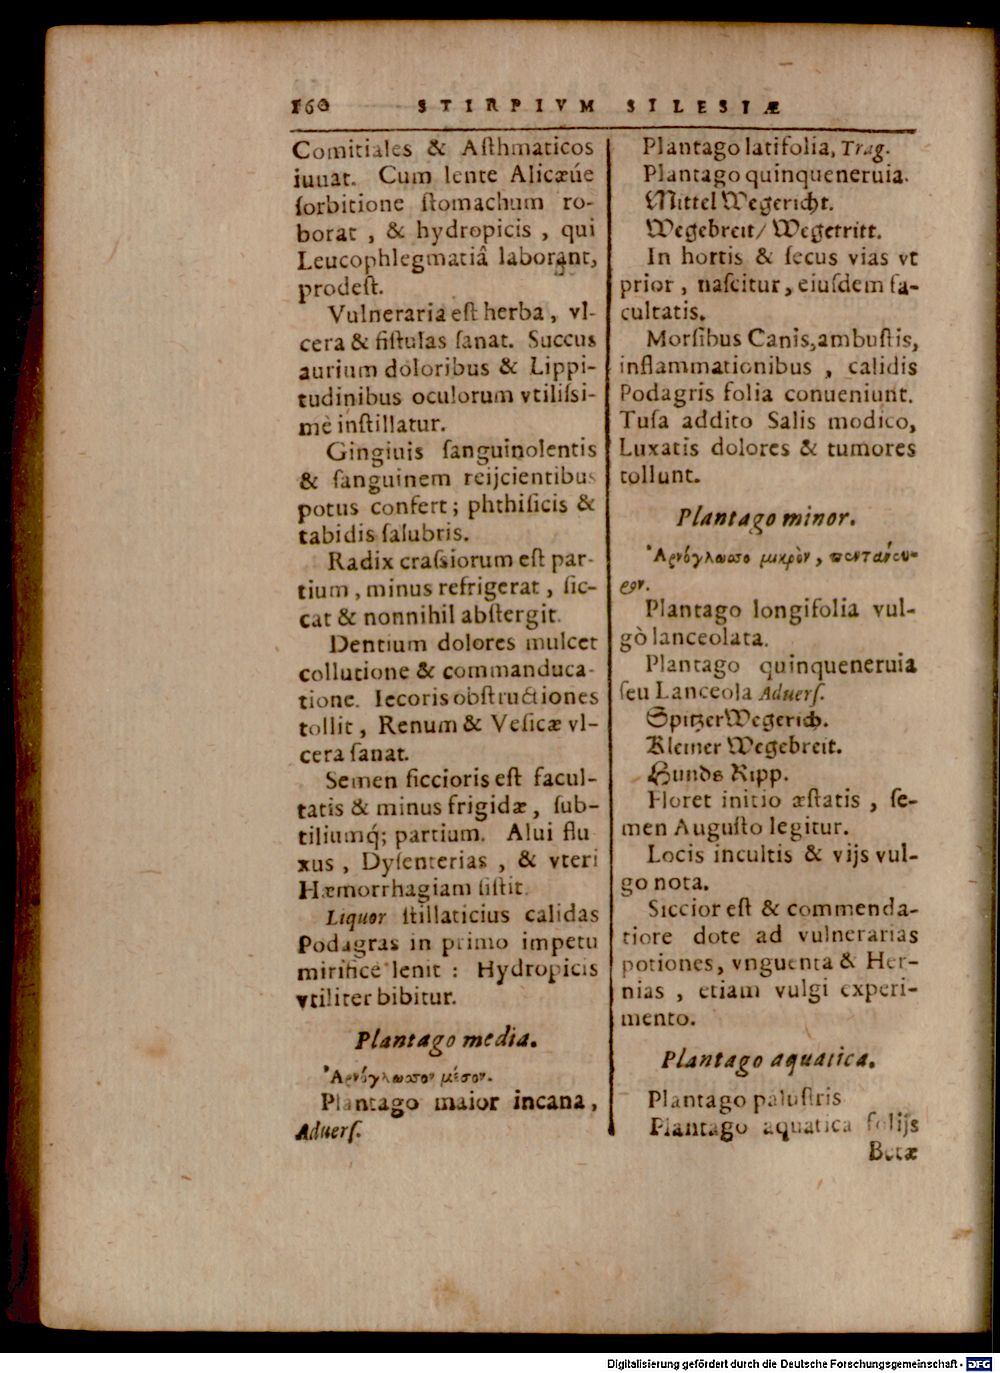 160 STIRPIVM SILESIÆ
Comitiales & Aſthmaticos
iuuat. Cum lente Alicæúe
ſorbitione ſtomachum ro-
borat , & hydropicis , qui
Leucophlegmatiâ laborant,
prodeſt.
Vulneraria eſt herba, vl-
cera & fiſtulas ſanat. Succus
aurium doloribus & Lippi-
tudinibus oculorum vtiliſsi-
mè inſtillatur.
Gingiuis ſanguinolentis
& ſanguinem reijcientibus
potus confert; phthiſicis &
tabidis ſalubris.
Radix craſsiorum eſt par-
tium , minus refrigerat , ſic-
cat & nonnihil abſtergit.
Dentium dolores mulcet
collutione & commanduca-
tione. Iecoris obſtructiones
tollit, Renum & Veſicæ vl-
cera ſanat.
Semen ſiccioris eſt facul-
tatis & minus frigidæ, ſub-
tiliumq́; partium. Alui flu
xus , Dyſenterias , & vteri
Hæmorrhagiam ſiſtit.
Liquor ſtillaticius calidas
Podagras in primo impetu
mirificè lenit : Hydropicis
vtiliter bibitur.
Plantago media.
Ἀρνόγλωσσον μέσον.
Plantago maior incana,
Aduerſ.
Plantago latifolia, Trag.
Plantago quinqueneruia.
Mittel Wegericht.
Wegebreit/ Wegetritt.
In hortis & ſecus vias vt
prior , naſcitur, eiuſdem fa-
cultatis.
Morſibus Canis, ambuſtis,
inflammationibus , calidis
Podagris folia conueniunt.
Tuſa addito Salis modico,
Luxatis dolores & tumores
tollunt.
Plantago minor.
Ἀρνόγλωσσο μικρὸν, πεντάνευ-
ρον.
Plantago longifolia vul-
gò lanceolata.
Plantago quinqueneruia
ſeu Lanceola Aduerſ.
Spitzer Wegerich.
Kleiner Wegebreit.
Hunds Ripp.
Floret initio æſtatis , ſe-
men Auguſto legitur.
Locis incultis & vijs vul-
go nota.
Siccior eſt & commenda-
tiore dote ad vulnerarias
potiones, vnguenta & Her-
nias , etiam vulgi experi-
mento.
Plantago aquatica.
Plantago paluſtris
Plantago aquatica folijs
Betæ
Digitalisierung gefördert durch die Deutsche Forschungsgemeinschaft - DFG